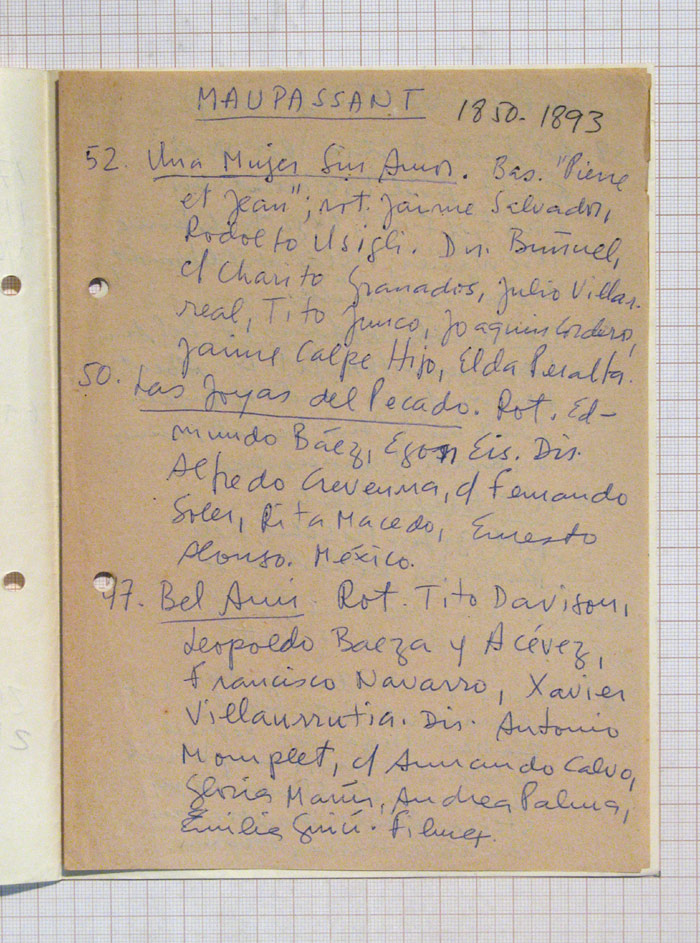 MAUPASSANT 1850-1893
52. Una Mujer Sin Amor. Bas. "Pierre
et Jean"; rot. Jaime Salvador,
Rodolfo Usigli. Dir. Buñuel,
c/ Charito Granados, Julio Villar-
real, Tito Junco, Joaquin Cordero,
Jaime Calpe Hijo, Elda Peralta.
50. Las Joyas del Pecado. Rot. Ed-
mundo Báez, Egon Eis. Dir.
Alfredo Crevenna, c/ Fernando
Soler, Rita Macedo, Ernesto
Alonso. México.
47. Bel Ami. Rot. Tito Davison,
Leopoldo Baeza y Acévez,
Francisco Navarro, Xavier
Villaurrutia. Dir. Antonio
Momplet, c/ Armando Calvo,
Gloria Marín, Andrea Palma,
Emilia Guiú. Filmex.